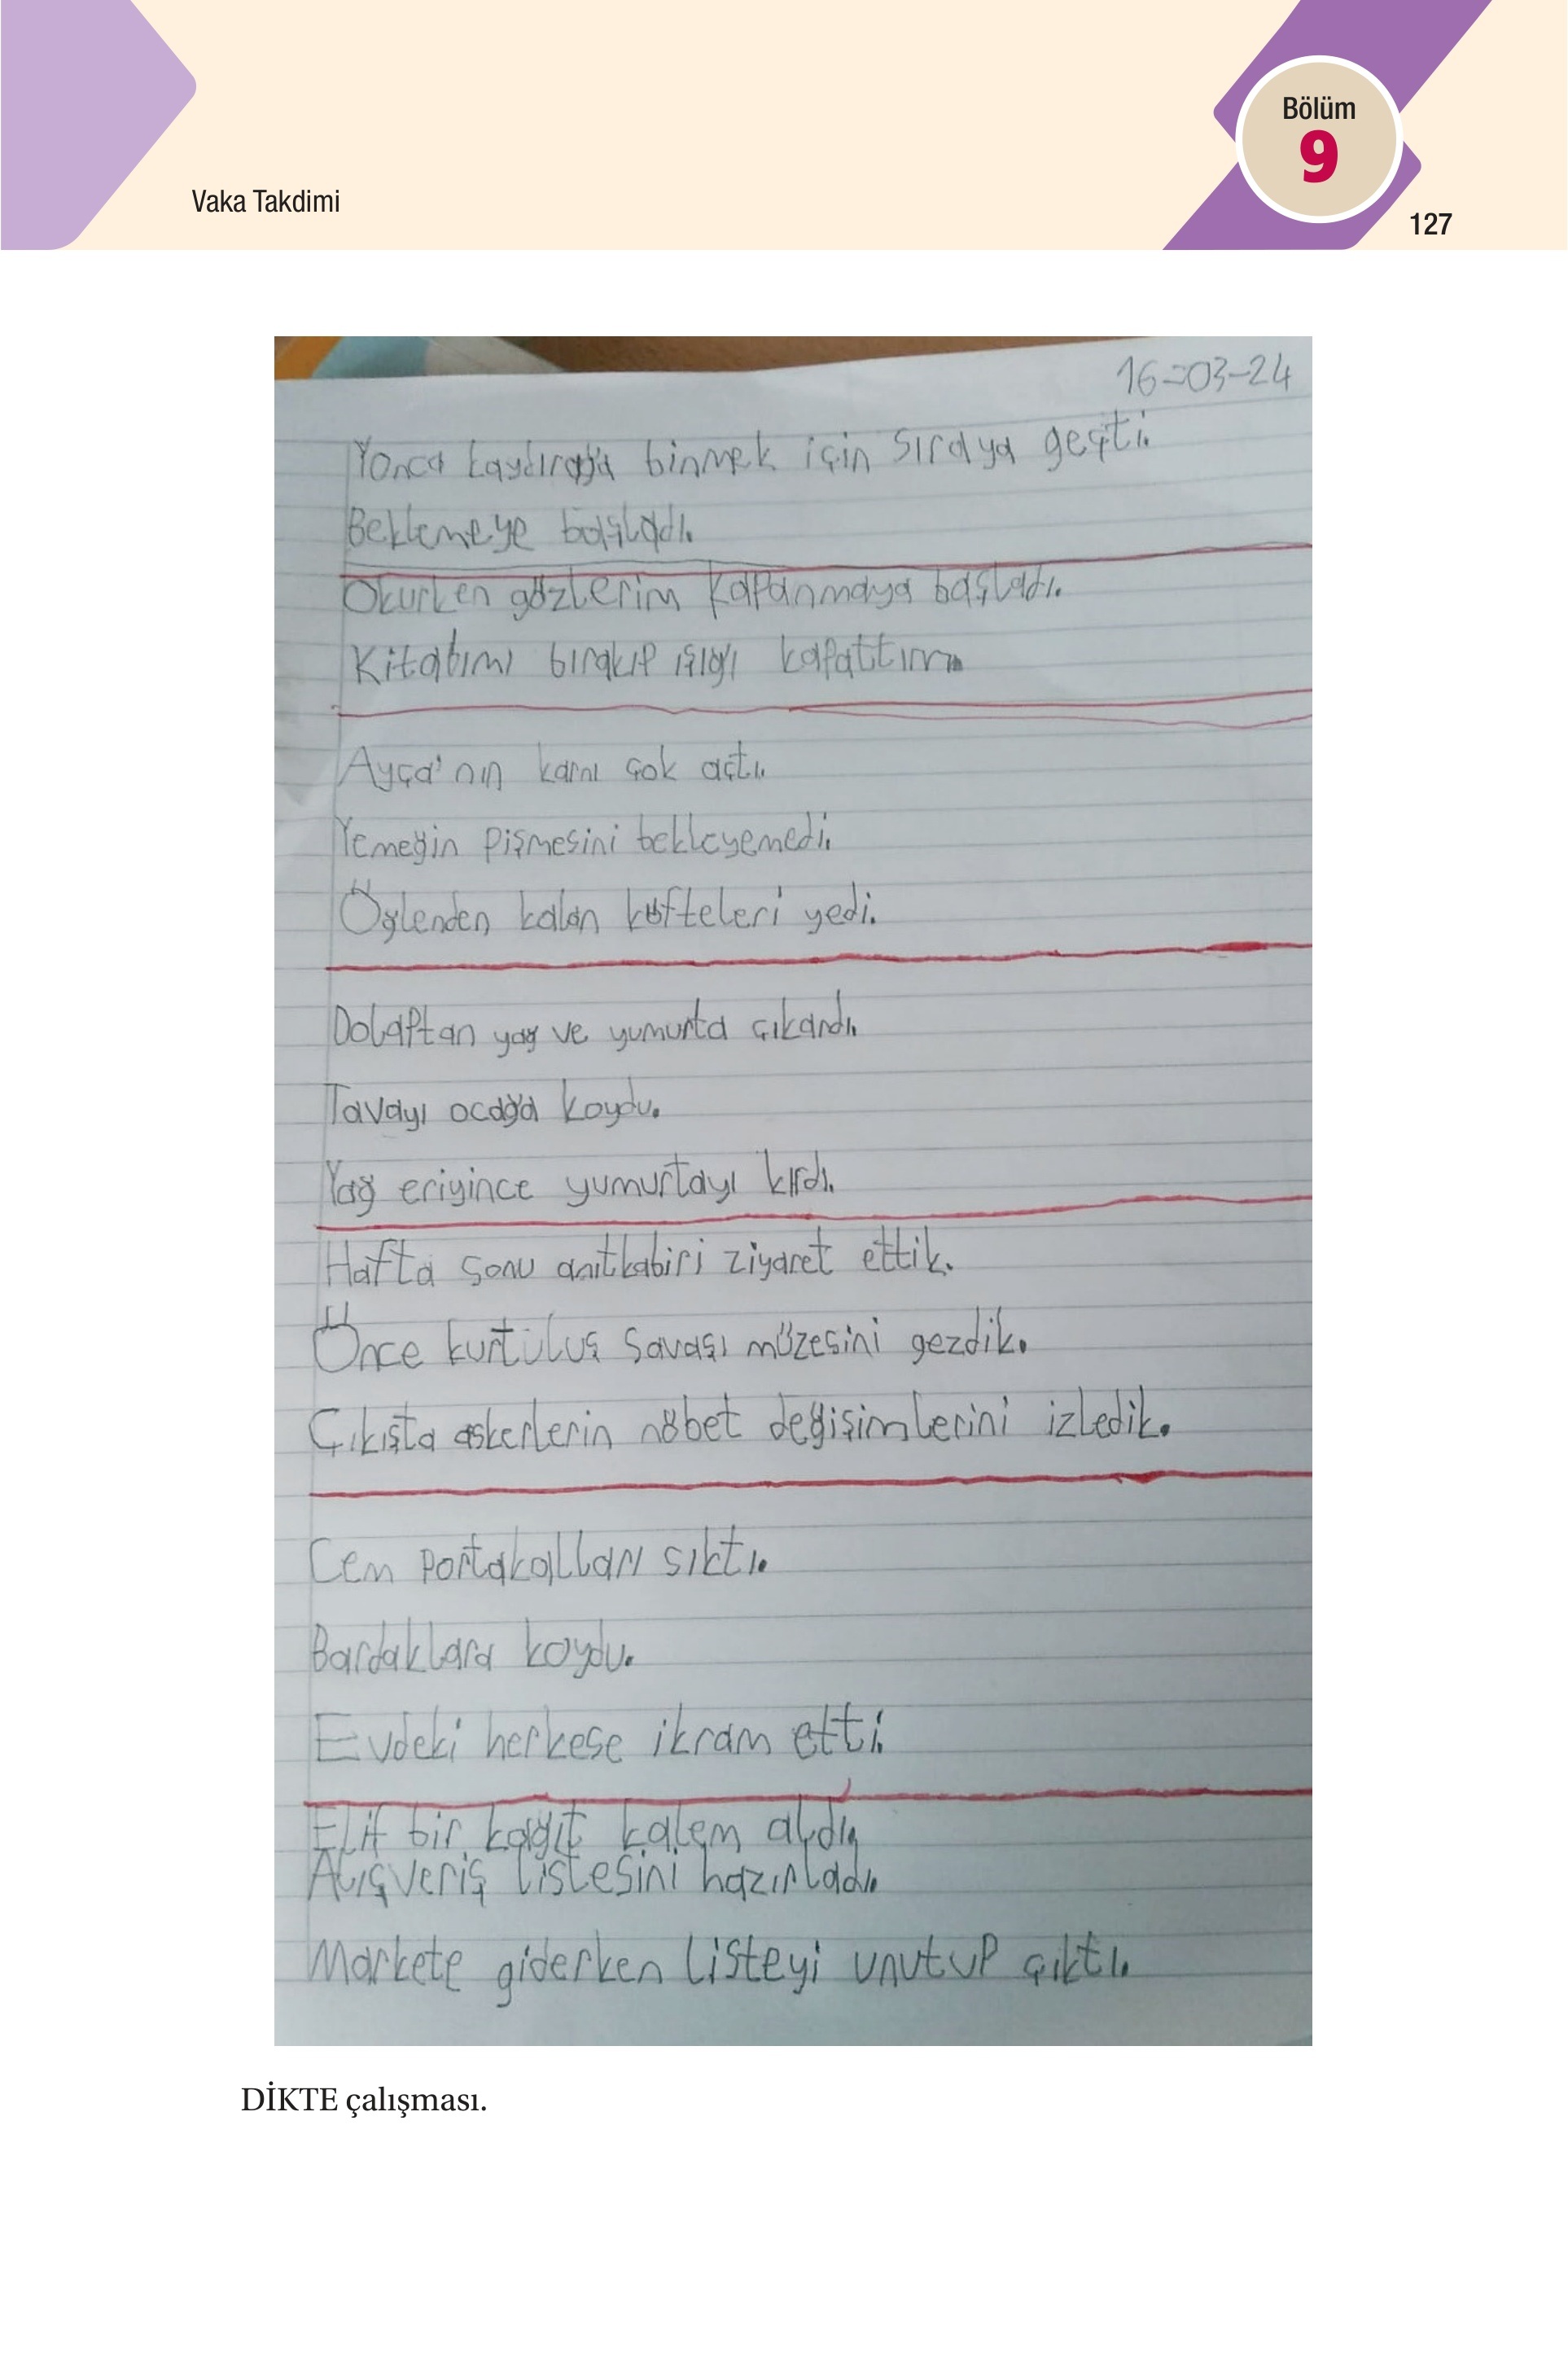 Bölüm
9
Vaka Takdimi
127
16-03-24
Yonca kaydırağa binmek için sıraya geçti.
Beklemeye başladı.
Okurken gözlerim kapanmaya başladı.
Kitabımı bırakıp ışığı kapattım.
Ayça'nın karnı çok açtı.
Yemeğin pişmesini bekleyemedi.
Öğlenden kalan köfteleri yedi.
Dolaptan yağ ve yumurta çıkardı.
Tavayı ocağa koydu.
Yağ eriyince yumurtayı kırdı.
Hafta sonu anıtkabiri ziyaret ettik.
Önce kurtuluş savaşı müzesini gezdik.
Çıkışta askerlerin nöbet değişimlerini izledik.
Cem portakalları sıktı.
Bardaklara koydu.
Evdeki herkese ikram etti.
Elif bir kağıt kalem aldı.
Alışveriş listesini hazırladı.
Markete giderken listeyi unutup çıktı.
DİKTE çalışması.